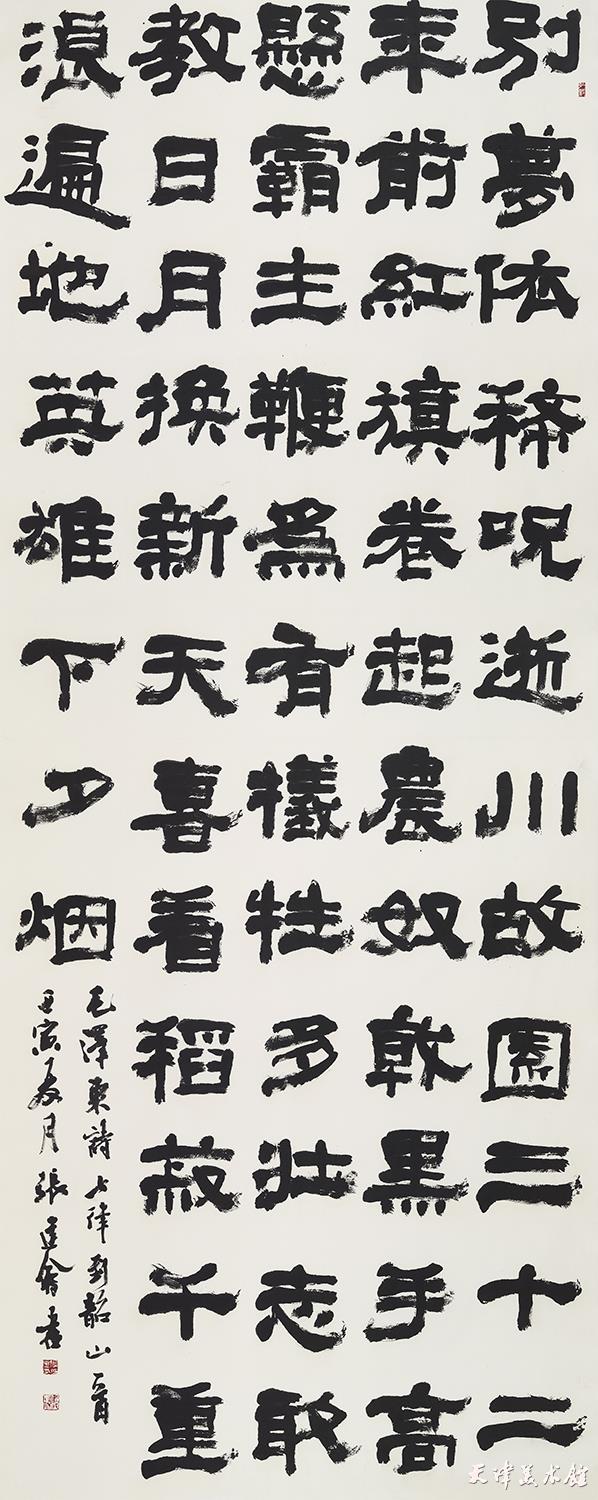 别夢依稀呪逝川故園三十二
年前紅旗卷起農奴戟黑手高
懸霸主鞭為有犧牲多壯志敢
教日月換新天喜看稻菽千重
浪遍地英雄下夕烟
毛澤東詩七律到韶山一首
壬寅月張建會書
天津美术馆